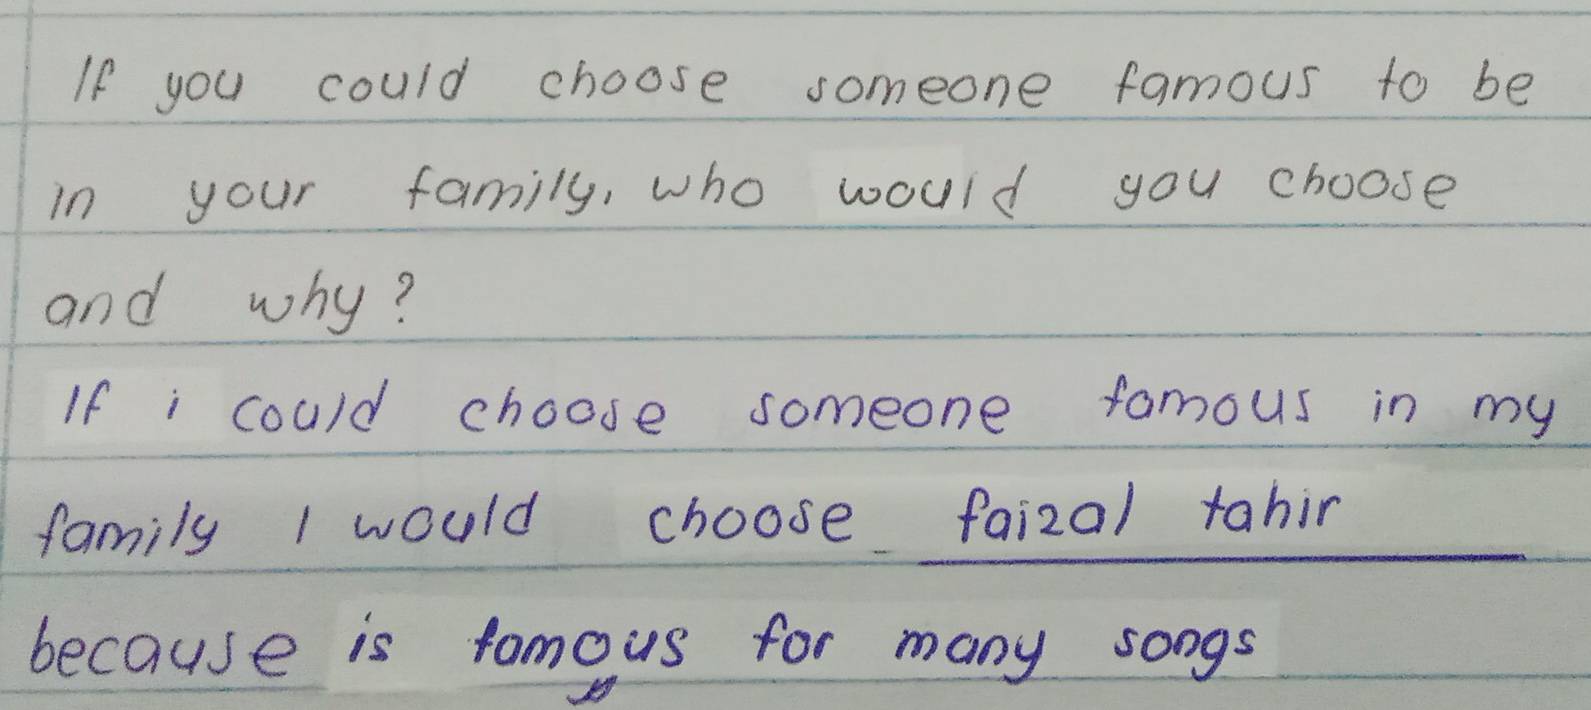 If you could choose someone famous to be
in your family, who would you choose
and why?
If i could choose someone famous in my
family I would choose faizal tahir
because is famous for many songs